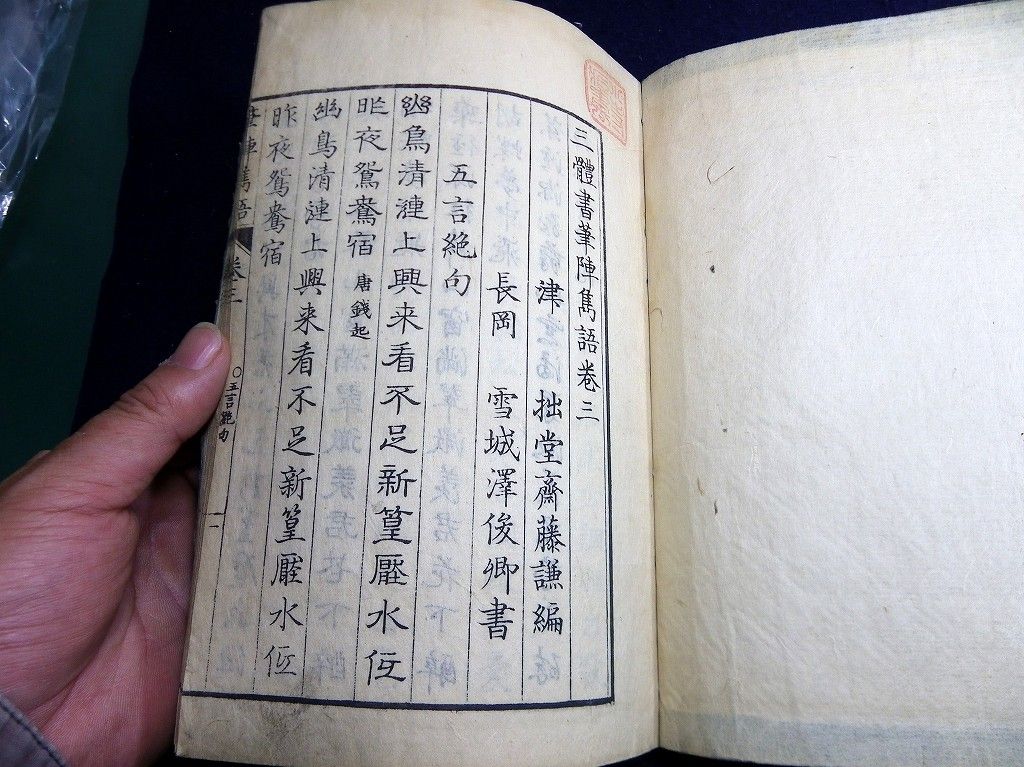 三體書筆陣雋語卷三
津 拙堂齋藤謙編
長岡 雪城澤俊卿書
五言絶句
幽鳥清漣上興来看不足新篁壓水低
昨夜鴛鴦宿 唐錢起
幽鳥清漣上興来看不足新篁壓水低
昨夜鴛鴦宿
筆陣雋語 卷三 ○五言絶句 一